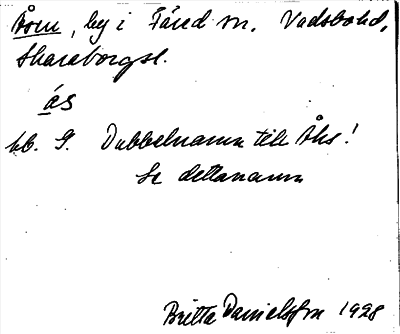 by i Färed sn. Vadsbo hd,
Skaraborgsl.
ås
bb. G. Dubbelnamn till Ås!
Se detta namn
Britta Danielsson 1928